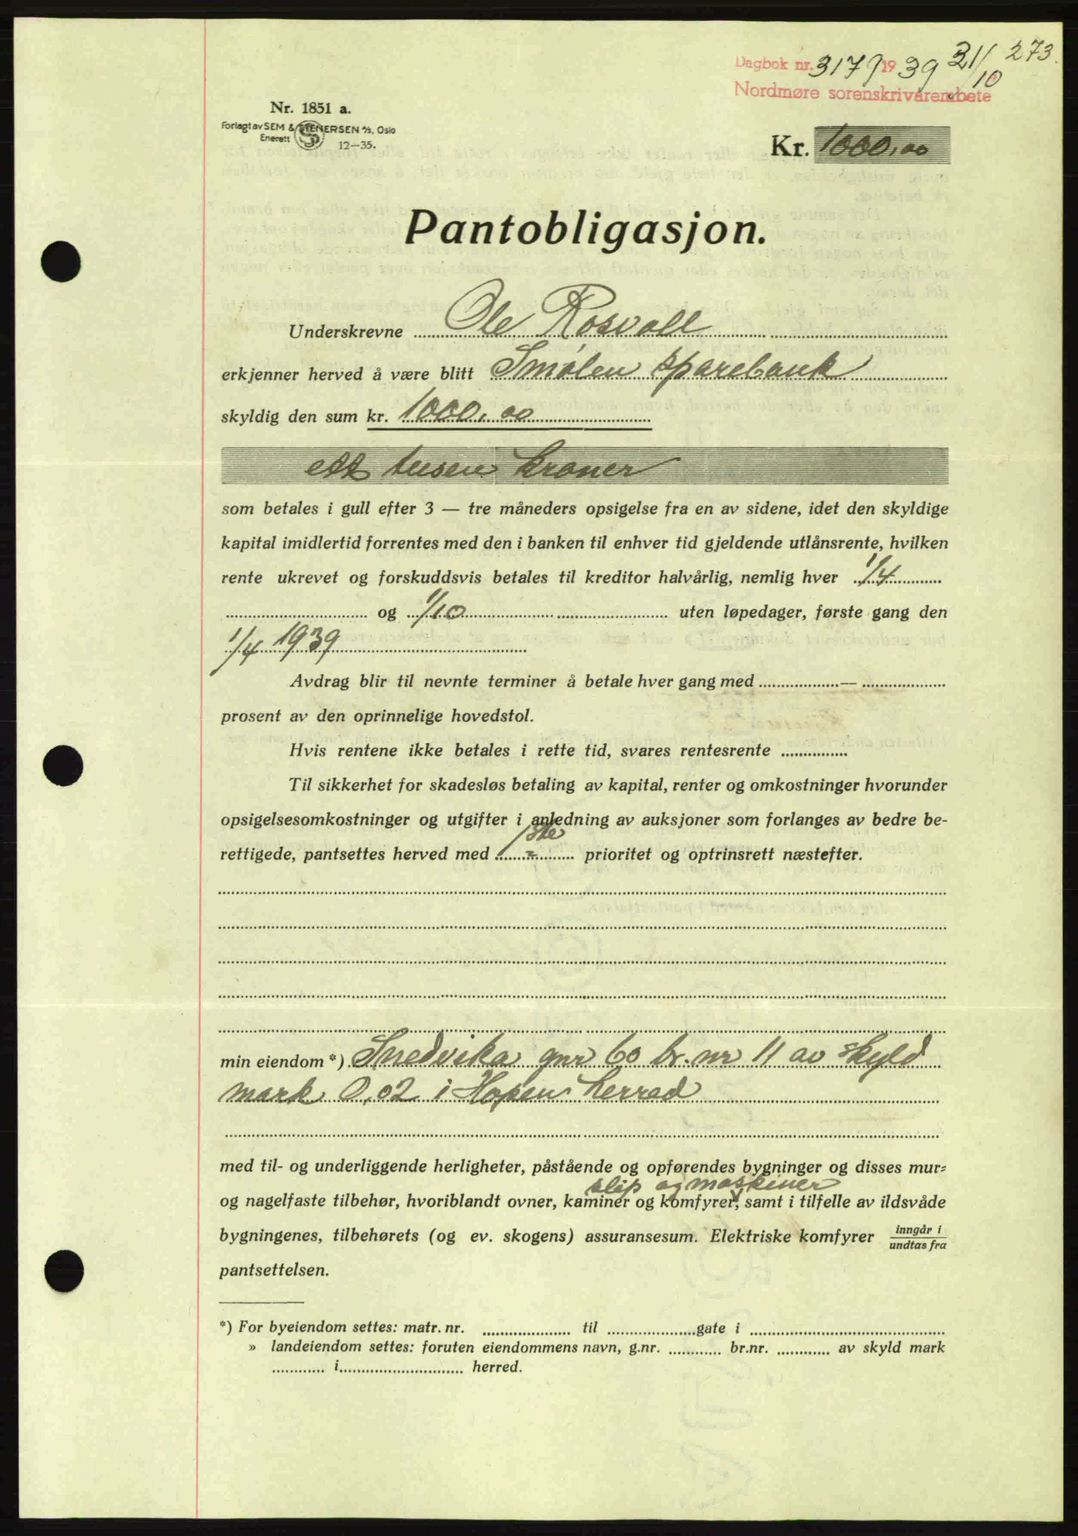 Dagbok nr. 3177 1939 31/10 273.
Nordmøre sorenskriverembete
Nr. 1851 a.
Forlagt av SEM & STENERSEN A/S, Oslo
Enerett
12—35.
Kr. 1000,00
Pantobligasjon.
Underskrevne Ole Rosvoll
erkjenner herved å være blitt Smølen Sparebank
skyldig den sum kr. 1000,00
ett tusen kroner
som betales i gull efter 3 — tre måneders opsigelse fra en av sidene, idet den skyldige
kapital imidlertid forrentes med den i banken til enhver tid gjeldende utlånsrente, hvilken
rente ukrevet og forskuddsvis betales til kreditor halvårlig, nemlig hver 1/4
og 1/10 uten løpedager, første gang den
1/4 1939
Avdrag blir til nevnte terminer å betale hver gang med —
prosent av den oprinnelige hovedstol.
Hvis rentene ikke betales i rette tid, svares rentesrente
Til sikkerhet for skadesløs betaling av kapital, renter og omkostninger hvorunder
opsigelsesomkostninger og utgifter i anledning av auksjoner som forlanges av bedre be-
rettigede, pantsettes herved med 1ste prioritet og optrinsrett næstefter.
min eiendom *) Snedvika gnr 60 br. nr 11 av skyld
mark 0,02 i Hopen herred
med til- og underliggende herligheter, påstående og opførendes bygninger og disses mur-
slip og maskiner
og nagelfaste tilbehør, hvoriblandt ovner, kaminer og komfyrer, samt i tilfelle av ildsvåde
bygningenes, tilbehørets (og ev. skogens) assuransesum. Elektriske komfyrer inngår i / undtas fra
pantsettelsen.
*) For byeiendom settes: matr. nr. til gate i
» landeiendom settes: foruten eiendommens navn, g.nr. br.nr. av skyld mark
i herred.